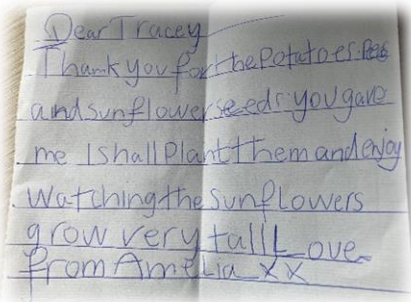 Dear Tracey
Thank you for the Potatoes. Peas
and sunflower seeds you gave
me I shall Plant them and enjoy
Watching the Sunflowers
grow very tall Love
from Amelia xx